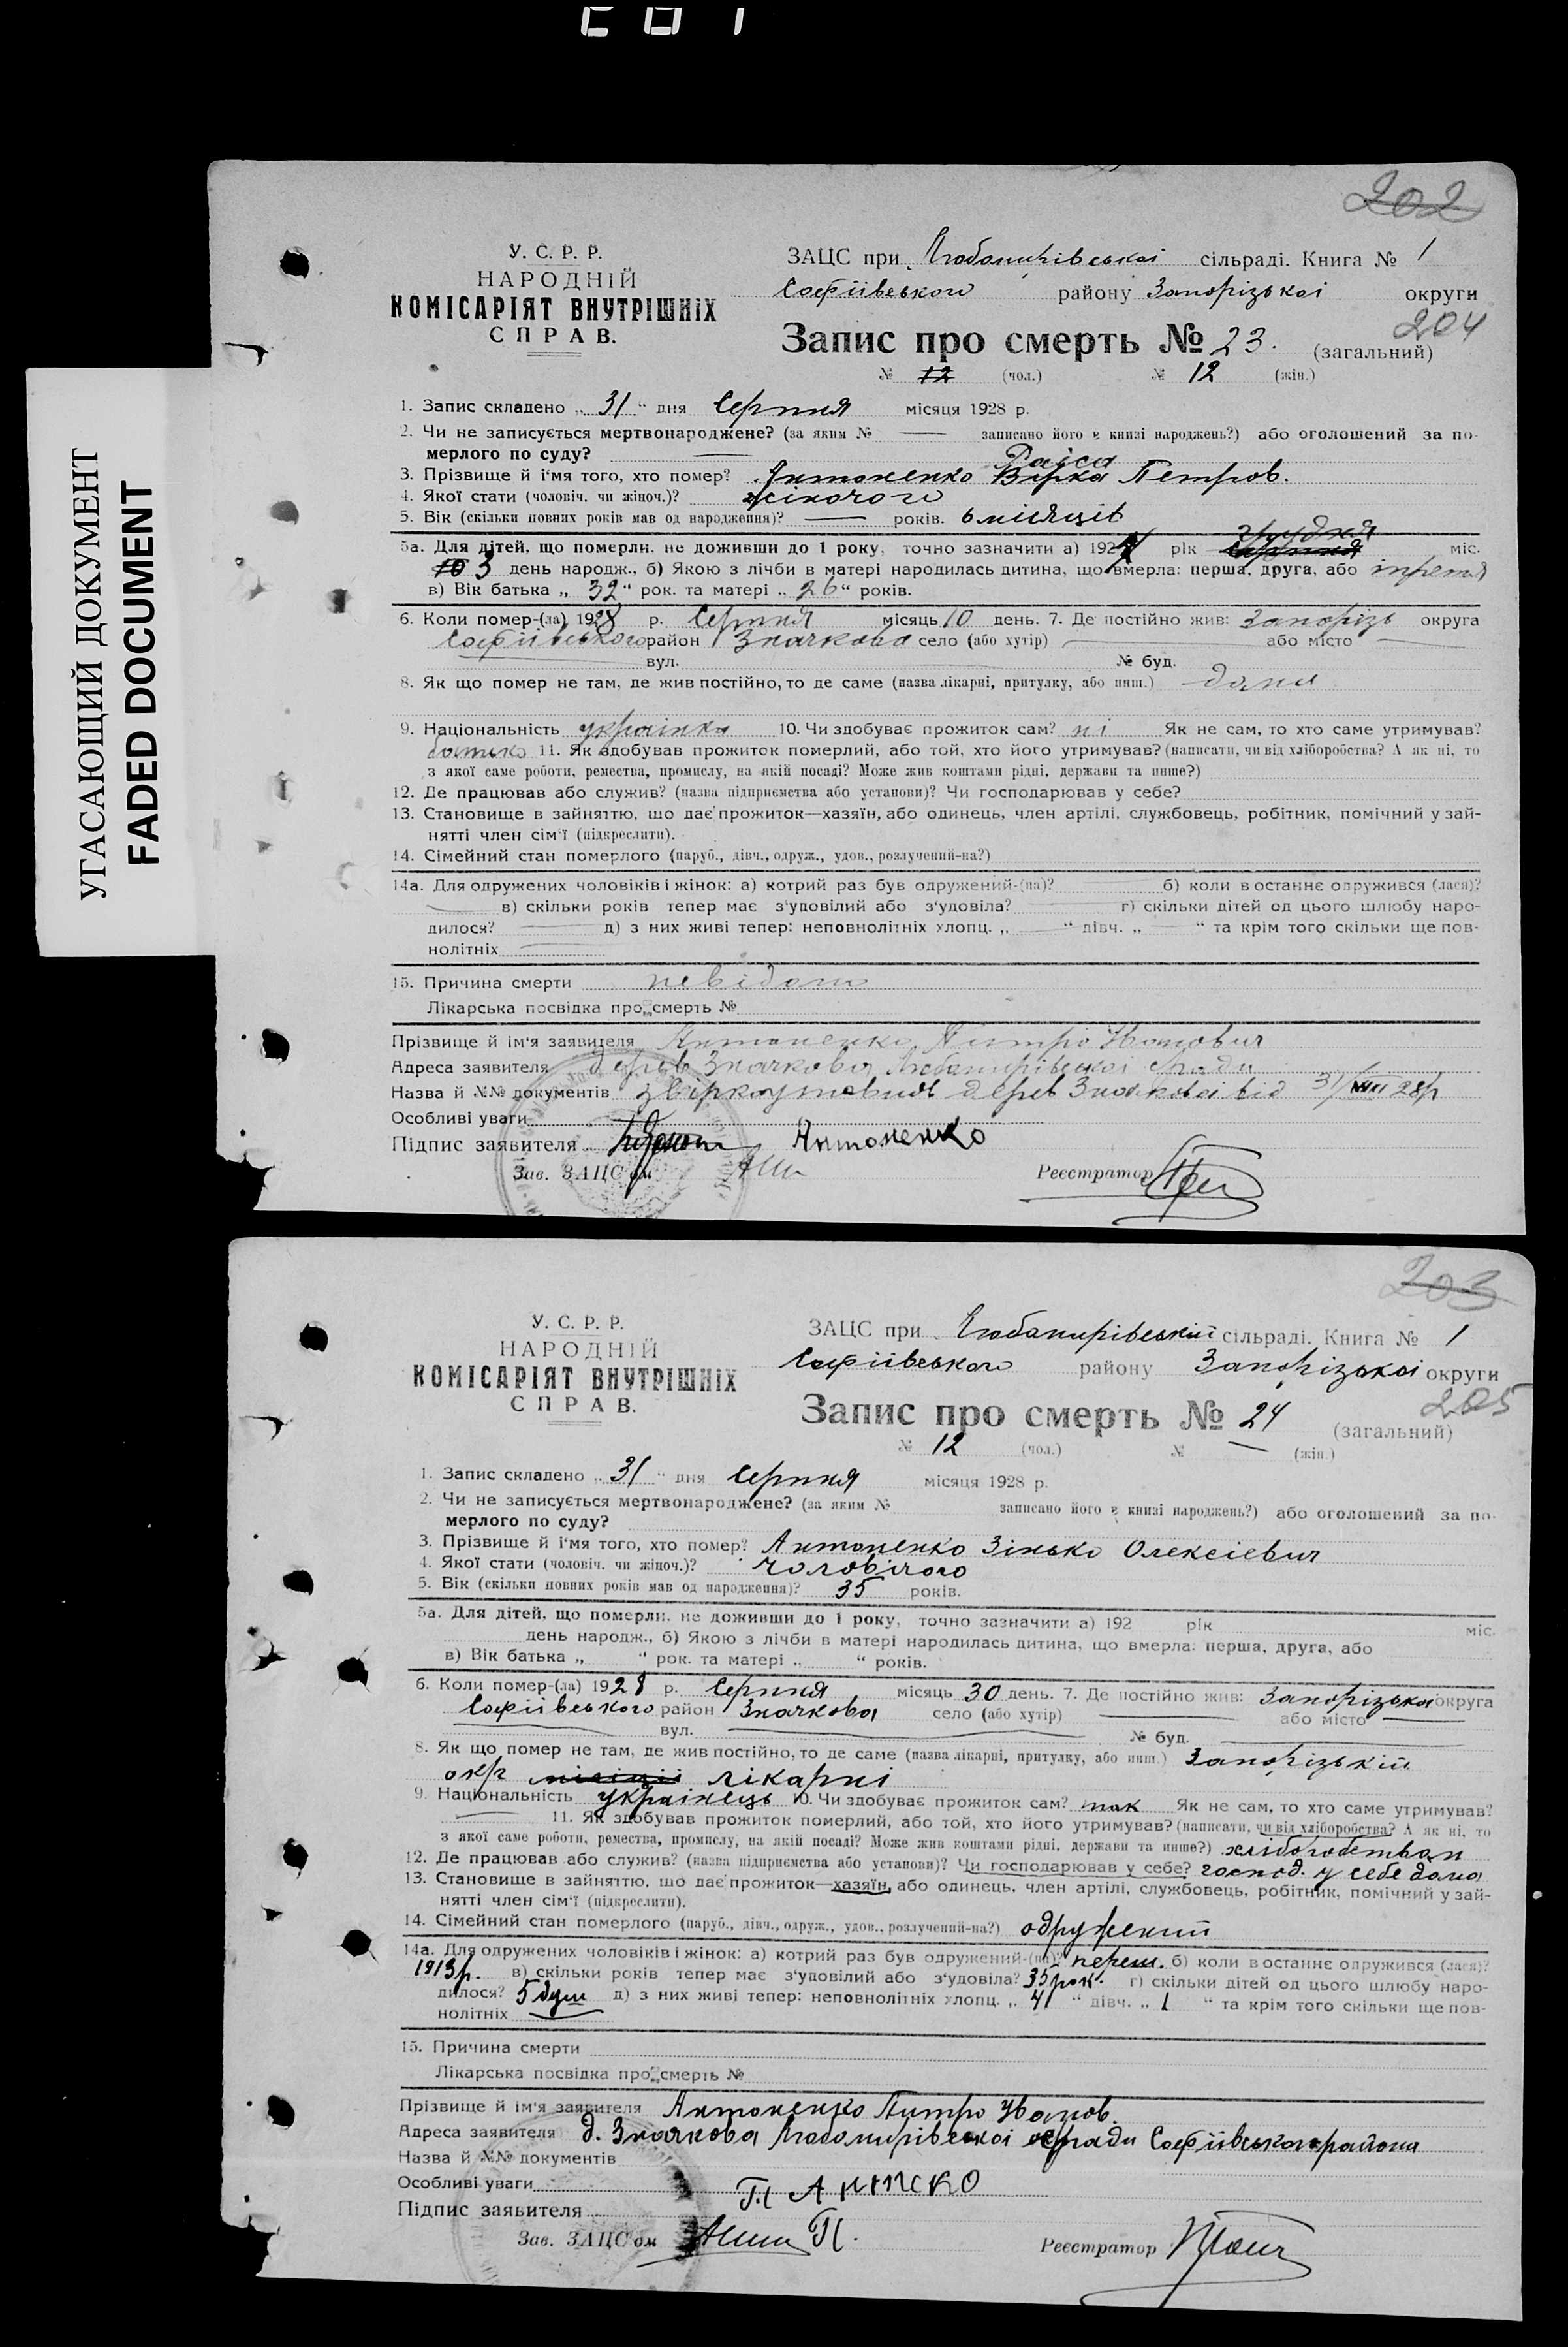 202
У. С. Р. Р.
НАРОДНІЙ
КОМІСАРІЯТ ВНУТРІШНІХ
СПРАВ.
ЗАЦС при Любомирівської сільраді. Книга № 1
Софіївського району Запорізької округи
204
Запис про смерть № 23. (загальний)
№ 12 (чол.) № 12 (жін.)
1. Запис складено „ 31 “ дня Серпня місяця 1928 р.
2. Чи не записується мертвонароджене? (за яким № — записано його в книзі народжень?) або оголошений за по-
мерлого по суду? —
Раїса
3. Прізвище й ім'я того, хто помер? Антоненко Вірка Петров.
4. Якої стати (чоловіч. чи жіноч.)? жіночого
5. Вік (скільки повних років мав од народження)? — років. 6 місяців
грудня
5а. Для дітей, що померли, не доживши до 1 року, точно зазначити а) 1927 рік серпня міс.
10 3 день народж., б) Якою з лічби в матері народилась дитина, що вмерла: перша, друга, або третя
в) Вік батька „ 32 “ рок. та матері „ 26 “ років.
6. Коли помер-(ла) 1928 р. Серпня місяць 10 день. 7. Де постійно жив: Запоріз округа
Софіївського район Значкова село (або хутір) — або місто —
вул. № буд.
8. Як що помер не там, де жив постійно, то де саме (назва лікарні, притулку, або инш.) дома
9. Національність українка 10. Чи здобуває прожиток сам? ні Як не сам, то хто саме утримував?
батько 11. Як здобував прожиток померлий, або той, хто його утримував? (написати, чи від хліборобства? А як ні, то
з якої саме роботи, ремества, промислу, на якій посаді? Може жив коштами рідні, держави та инше?)
12. Де працював або служив? (назва підприємства або установи)? Чи господарював у себе?
13. Становище в зайняттю, що дає прожиток—хазяїн, або одинець, член артілі, службовець, робітник, помічний у зай-
нятті член сім'ї (підкреслити).
14. Сімейний стан померлого (паруб., дівч., одруж., удов., розлучений-на?)
14а. Для одружених чоловіків і жінок: а) котрий раз був одружений-(на)? — б) коли в останнє одружився (лася)?
— в) скільки років тепер має з'удовілий або з'удовіла? — г) скільки дітей од цього шлюбу наро-
дилося? — д) з них живі тепер: неповнолітніх хлопц. „ — “ дівч. „ — “ та крім того скільки ще пов-
нолітніх —
15. Причина смерти невідома
Лікарська посвідка про смерть №
Прізвище й ім'я заявителя Антоненко Питро Іванович
Адреса заявителя дерев Значкова Любомирівської с/ради
Назва й №№ документів дерев Значкової від 31/VIII 28р
Особливі уваги
Підпис заявителя Антоненко
Зав. ЗАЦС'ом Реєстратор
203
У. С. Р. Р.
НАРОДНІЙ
КОМІСАРІЯТ ВНУТРІШНІХ
СПРАВ.
ЗАЦС при Любомирівській сільраді. Книга № 1
Софіївського району Запорізької округи
205
Запис про смерть № 24 (загальний)
№ 12 (чол.) № — (жін.)
1. Запис складено „ 31 “ дня Серпня місяця 1928 р.
2. Чи не записується мертвонароджене? (за яким № записано його в книзі народжень?) або оголошений за по-
мерлого по суду?
3. Прізвище й ім'я того, хто помер? Антоненко Зінько Олексієвич
4. Якої стати (чоловіч. чи жіноч.)? чоловічого
5. Вік (скільки повних років мав од народження)? 35 років.
5а. Для дітей, що померли, не доживши до 1 року, точно зазначити а) 192 рік міс.
день народж., б) Якою з лічби в матері народилась дитина, що вмерла: перша, друга, або
в) Вік батька „ “ рок. та матері „ “ років.
6. Коли помер-(ла) 1928 р. Серпня місяць 30 день. 7. Де постійно жив: Запорізька округа
Софіївського район Значкова село (або хутір) — або місто —
вул. — № буд. —
8. Як що помер не там, де жив постійно, то де саме (назва лікарні, притулку, або инш.) Запорізькій
окр лікарні
9. Національність українець 10. Чи здобуває прожиток сам? так Як не сам, то хто саме утримував?
— 11. Як здобував прожиток померлий, або той, хто його утримував? (написати, чи від хліборобства? А як ні, то
з якої саме роботи, ремества, промислу, на якій посаді? Може жив коштами рідні, держави та инше?) хліборобством
12. Де працював або служив? (назва підприємства або установи)? Чи господарював у себе? господ. у себе дома
13. Становище в зайняттю, що дає прожиток—хазяїн, або одинець, член артілі, службовець, робітник, помічний у зай-
нятті член сім'ї (підкреслити).
14. Сімейний стан померлого (паруб., дівч., одруж., удов., розлучений-на?) одружений
14а. Для одружених чоловіків і жінок: а) котрий раз був одружений-(на)? перш. б) коли в останнє одружився (лася)?
1913р. в) скільки років тепер має з'удовілий або з'удовіла? 35 рок. г) скільки дітей од цього шлюбу наро-
дилося? 5 душ д) з них живі тепер: неповнолітніх хлопц. „ 4 “ дівч. „ 1 “ та крім того скільки ще пов-
нолітніх —
15. Причина смерти
Лікарська посвідка про смерть №
Прізвище й ім'я заявителя Антоненко Питро Іванов.
Адреса заявителя д. Значкова Любомирівської с/ради Софіївського района
Назва й №№ документів
Особливі уваги
Підпис заявителя
Зав. ЗАЦС'ом Реєстратор
УГАСАЮЩИЙ ДОКУМЕНТ
FADED DOCUMENT